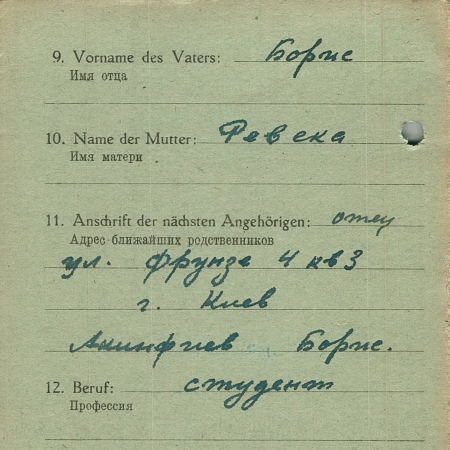 9. Vorname des Vaters: Борис
Имя отца
10. Name der Mutter: Ревека
Имя матери
11. Anschrift der nächsten Angehörigen: отец
Адрес ближайших родственников
ул. Фрунзе 4 кв 3
г. Киев
Акинфиев Борис.
12. Beruf: студент
Профессия